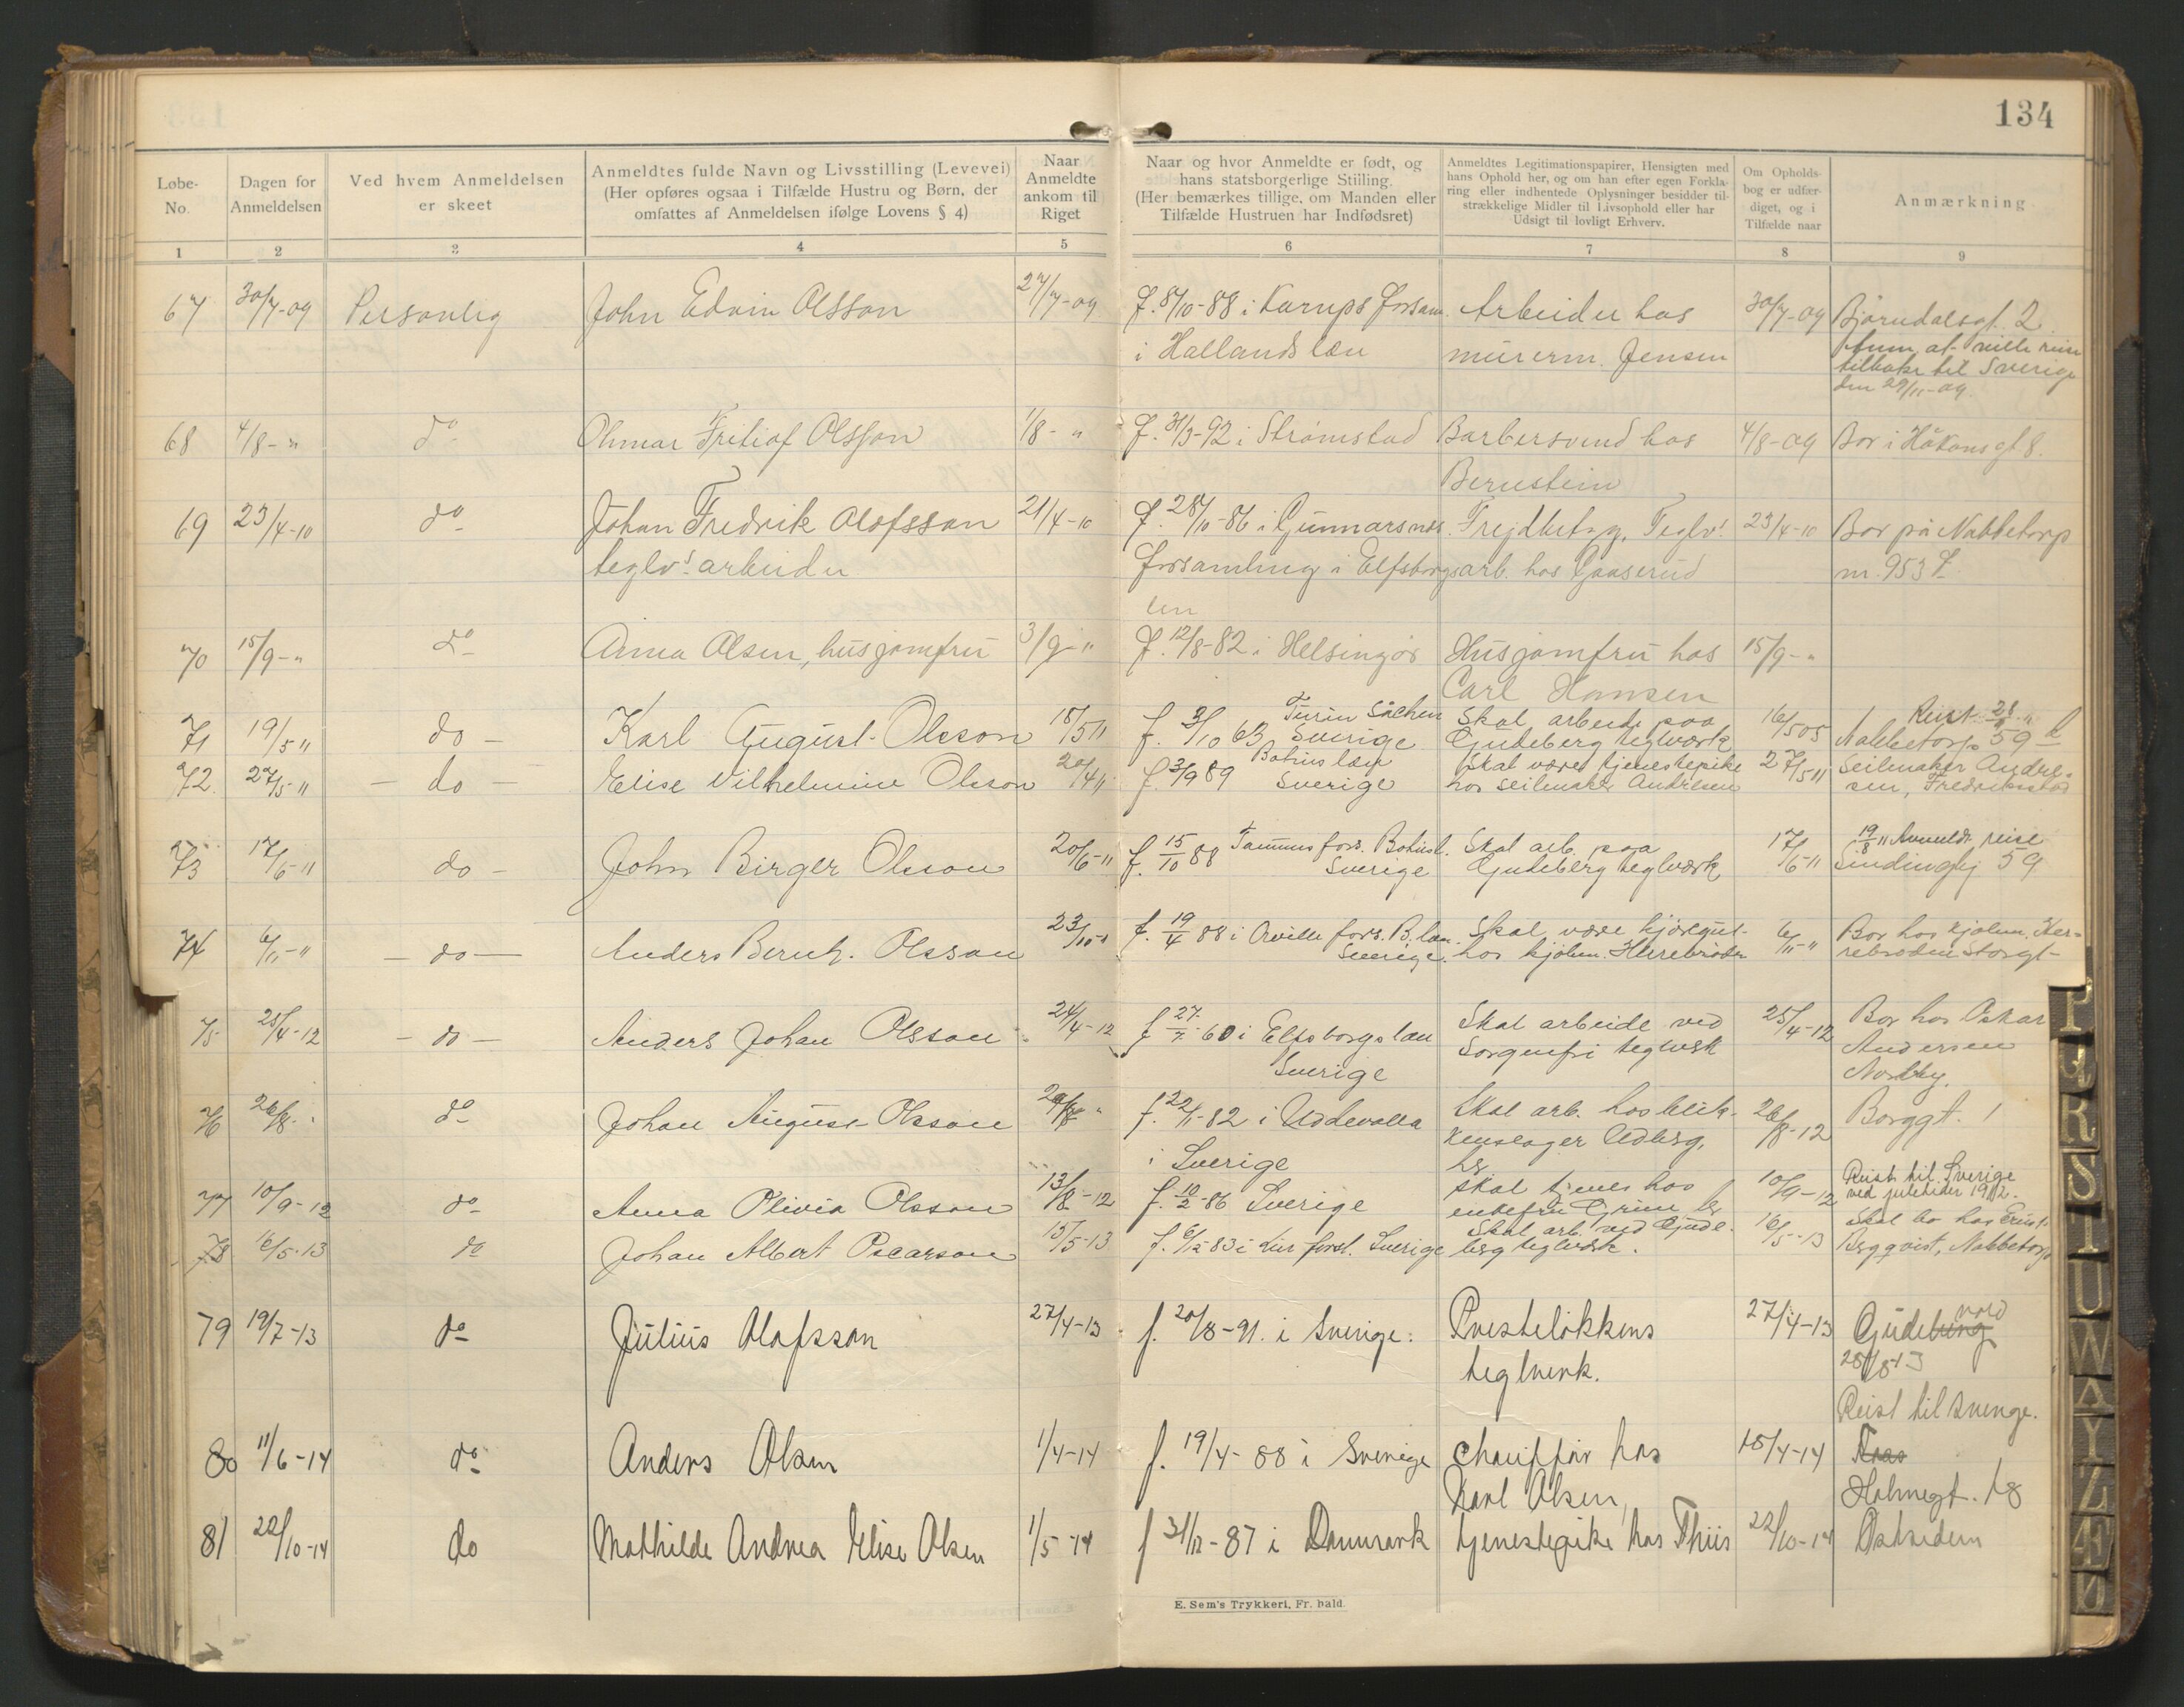 134
Løbe-No.
Dagen for Anmeldelsen
Ved hvem Anmeldelsen er skeet
Anmeldtes fulde Navn og Livsstilling (Levevei)
(Her opføres ogsaa i Tilfælde Hustru og Børn, der
omfattes af Anmeldelsen ifølge Lovens § 4)
Naar Anmeldte ankom til Riget
Naar og hvor Anmeldte er født, og
hans statsborgerlige Stiiling.
(Her bemærkes tillige, om Manden eller
Tilfælde Hustruen har Indfødsret)
Anmeldtes Legitimationspapirer, Hensigten med
hans Ophold her, og om han efter egen Forkla-
ring eller indhentede Oplysninger besidder til-
strækkelige Midler til Livsophold eller har
Udsigt til lovligt Erhverv.
Om Opholds-
bog er udfær-
diget, og i
Tilfælde naar
Anmærkning
1 2 3 4 5 6 7 8 9
67 30/7-09 Personlig John Edvin Olsson 27/7-09 f. 8/10-88 i Karups forsam. Arbeider hos 30/7-09 Bjørndalsgt. 2.
i Hallands læn murerm. Jensen
at ville reise
tilbake til Sverige
den 29/11-09
68 4/8-" do Olmar Fritiof Olsson 1/8-" f. 31/3-92 i Strømstad Barbersvend hos 4/8-09 Bor i Håkons gt 8.
Bernstein
69 23/4-10 do Johan Fredrik Olofsson 21/4-10 f. 28/10-86 i Gunnarsnæs Frejdbetyg. Teglv. 23/4-10 Bor på Nabbetorp
teglv. arbeider forsamling i Elfsborgs arb. hos Gaaserud nr. 953
len
70 15/9-" do Anna Olsen, husjomfru 3/9-" f. 12/8-82 i Helsingör Husjomfru hos 15/9-"
Carl Hansen
71 19/5 " do - Karl August Olsson 18/5 11 f. 3/10 63 Sverige Skal arbeide paa Gudeberg teglværk 16/5 05 Nabbetorp 59
72. 27/5-11 - do - Elise Vilhelmine Olsson 20/4 11 f. 3/9 89 Bohus læn Sverige Skal være tjenestepike 27/5 11 Seilmaker Andre-
hos Seilmaker Andresen sen, Fredriksstad
73 17/6-11 do - John Birger Olsson 20/6-11 f. 15/10 88 Tanums fors. Bohusl. Skal arb. paa 17/6-11 19/8 11 Anmeldt reise
Sverige Gudeberg teglværk 59
74 6/11-" - do - Anders Bernh. Olsson 23/10-" f. 19/4 88 i fors. B. læn. Skal være kjøregut 6/11-" Bor hos kjøbm. Her-
Sverige. hos kjøbm. Herrebrøden rebrøden Storgt-
75 25/4-12 - do - Anders Johan Olsson 24/4-12 f. 27/7-60 i Elfsborgs læn Skal arbeide ved 25/4-12 Bor hos Oskar
Sverige Sorgenfri teglverk Andersen
Nordby.
76 26/8-" do Johan August Olsson f. 22/1-82 i Uddevalla Skal arb. hos blik- 26/8-12 Borggt. 1
i Sverige kenslager
77 10/9-12 do Anna Olivia Olsson 13/8-12 f. 10/2-86 Sverige Skal tjene hos 10/9-12 Reist til Sverige
enkefru ved juletider 1912.
78 16/5-13 do Johan Albert Oscarson 15/5-13 f. 6/12-83 i Sverige Skal arb. ved Gude- 16/5-13 Skal bo hos
berg teglverk. Bergqvist, Nabbetorp
79 19/7-13 do Julius Olafsson 27/4-13 f. 20/8-91. i Sverige. Presteløkkens 27/4-13 Gudeberg
teglverk.
Reist til Sverige.
80 11/6-14 do Anders Olsen 1/4-14 f. 19/4-88 i Sverige chauffør hos 18/4-14
Karl Olsen, Holmegt. 18
81 22/10-14 do Mathilde Andrea Elise Olsen 1/5-14 f 31/12-87 i Danmark tjenestepike hos Thiis 22/10-14 Østsiden
E. Sem's Trykkeri, Fr. hald.
P
R
S
T
U
W
A
Y
Z
Æ
Ø